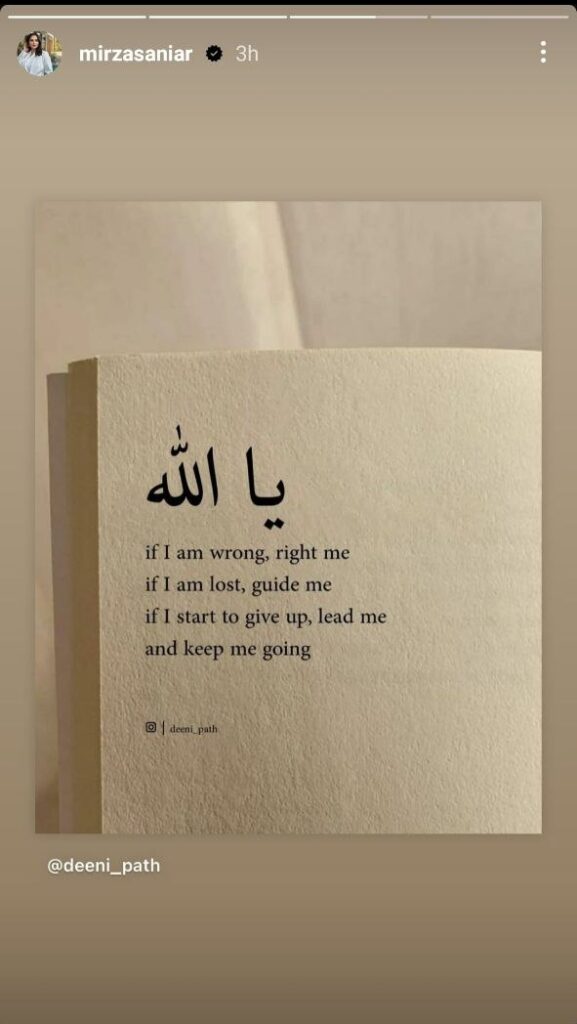 mirzasaniar 3h
يا الله
if I am wrong, right me
if I am lost, guide me
if I start to give up, lead me
and keep me going
| deeni_path
@deeni_path